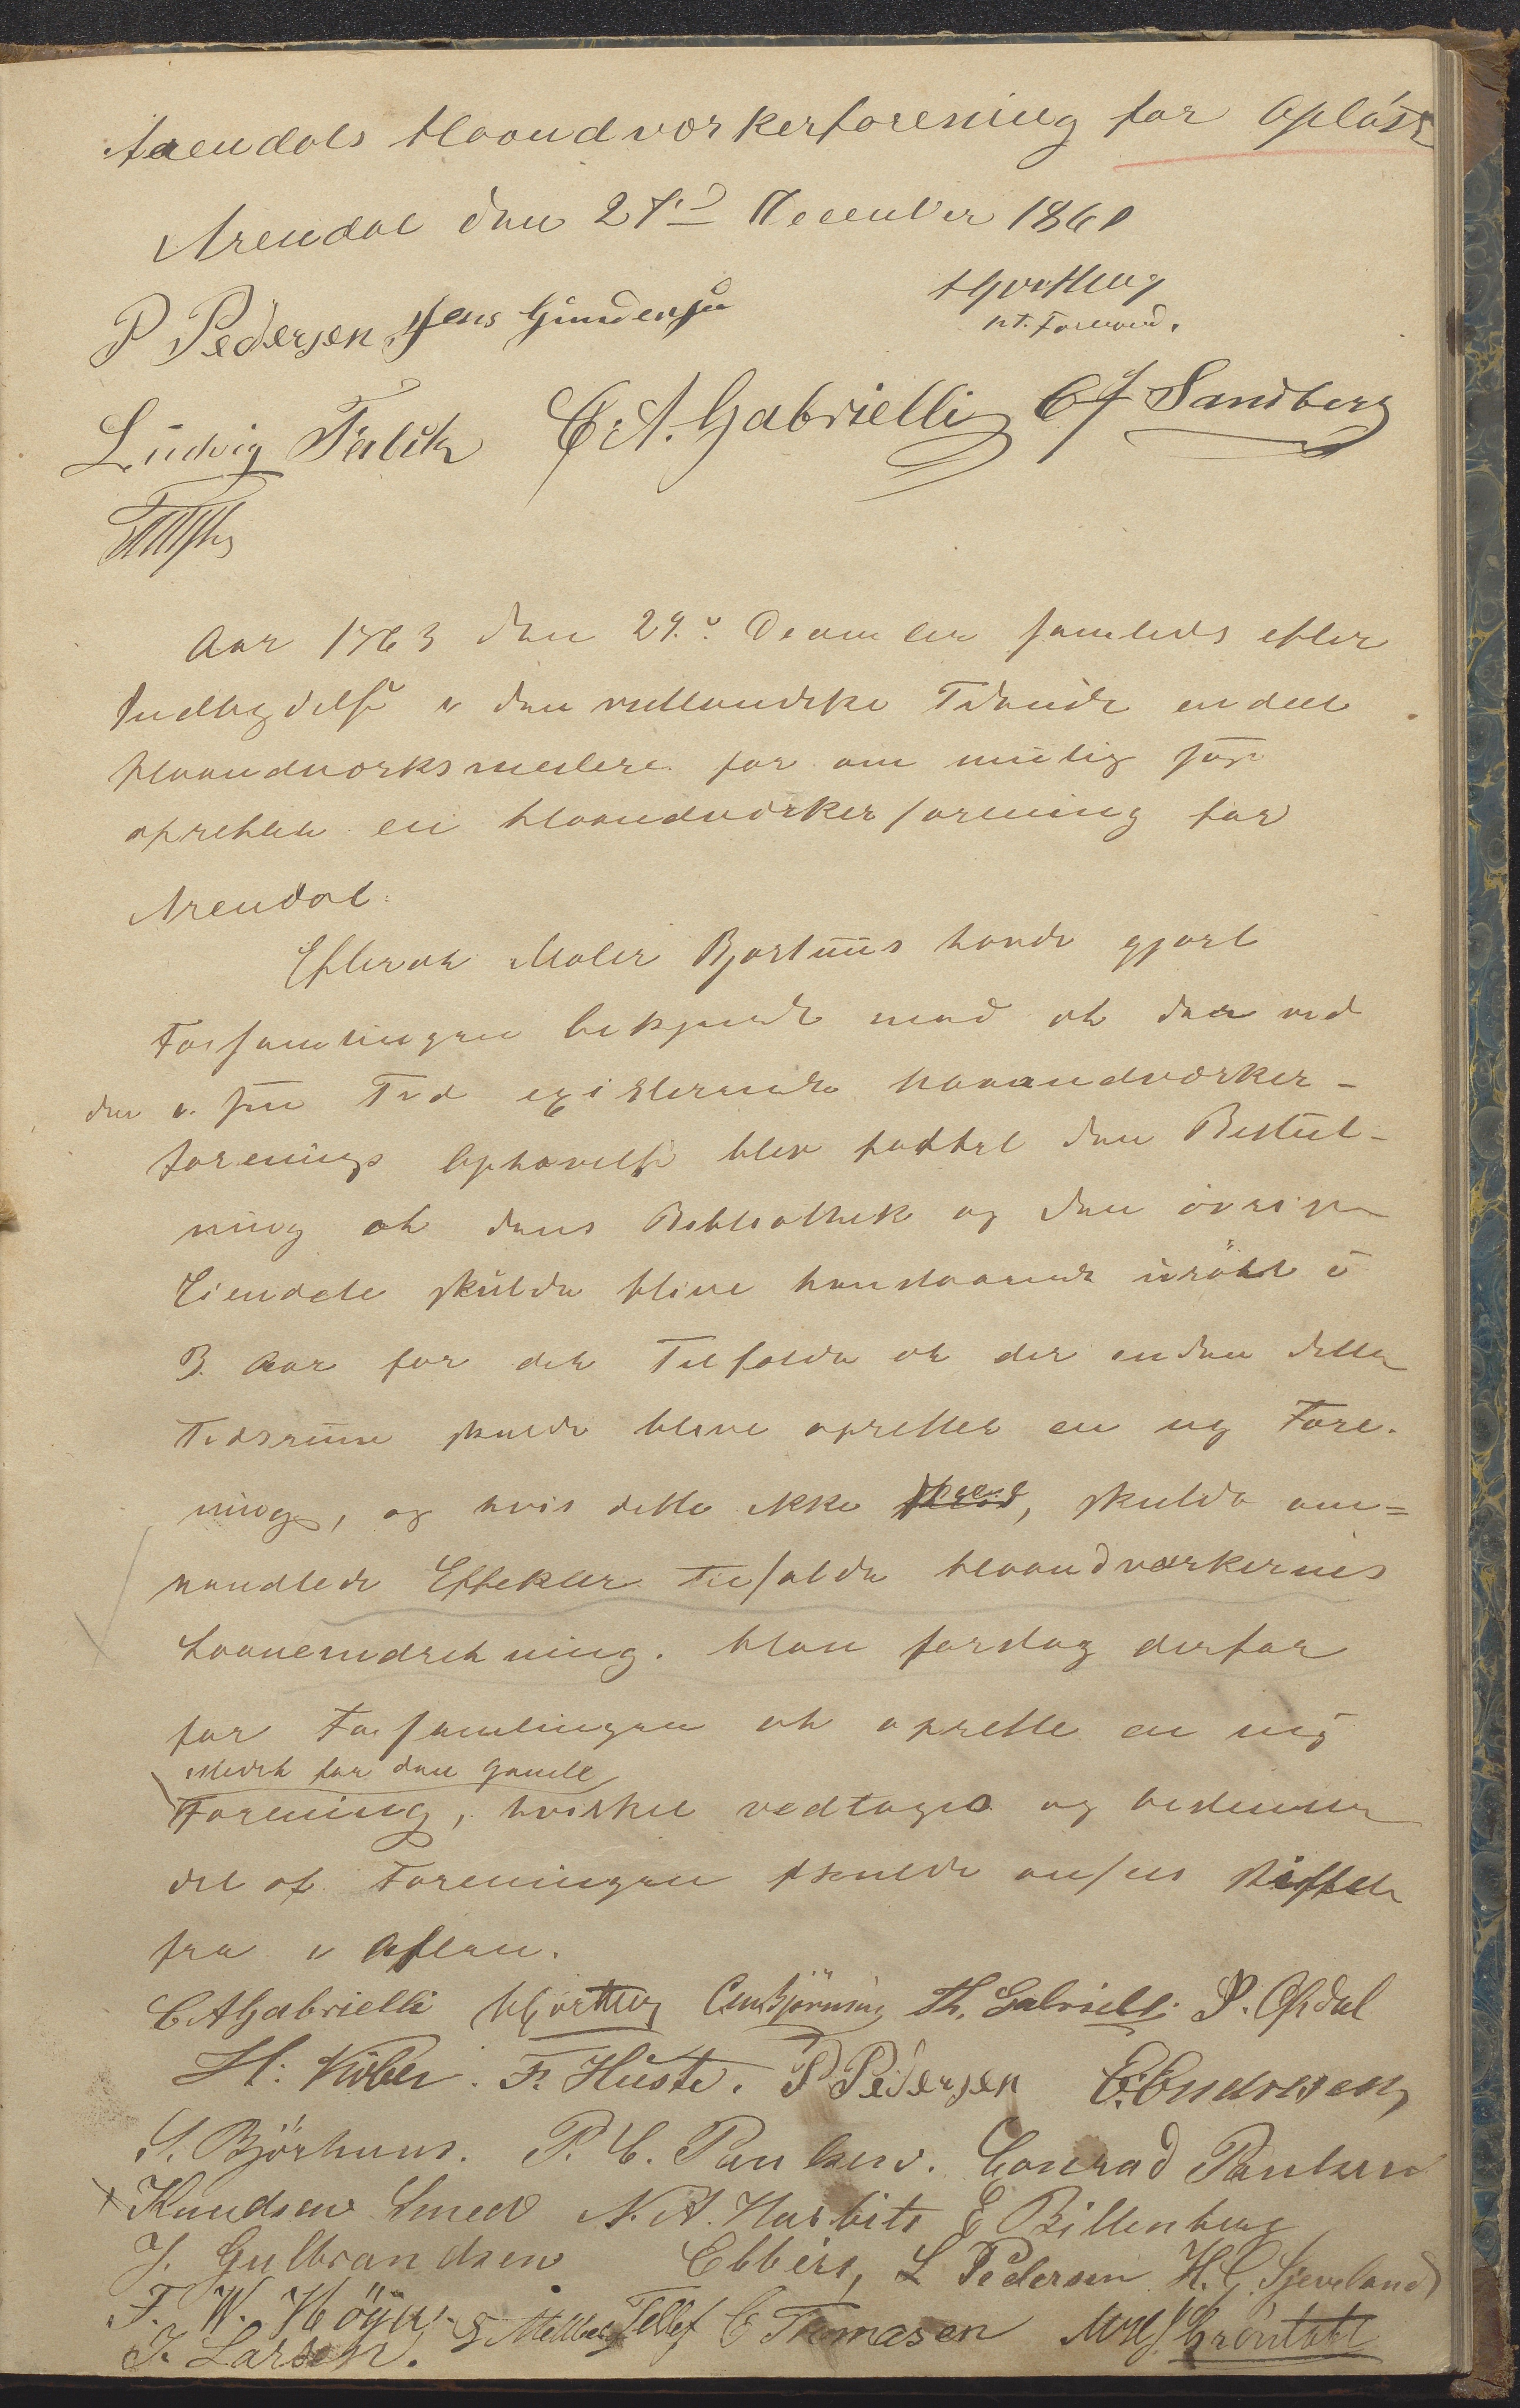 Arendals Haandværkerforening for opløst
Arendal den 27de December 1860
Hjorthug
P Pedersen Jens Gundersen
nt. Formand.
Ludvig Falck C. A. Gabrielli C J Sandberg
Aar 1863 den 29de December samledes efter
Indbydelse i den vestlandske Tidende endeel
Haandværksmestere for om muelig søge
oprettet en Haandværkerforening for
Arendal.
Efterat Maler Bjorhuus havde gjort
Forsamlingen bekjendt med at da ved
den i sin Tid existerende Haandværker-
forenings Ophævelse blev fattet den Beslut-
ning at dens Bibliothek og den øvrige
Eiendele skulde blive henstaaende urørt i
3 Aar for det Tilfælde at der inden dette
Tidsrum skulde blive oprettet en ny Fore-
ning, og hvis dette ikke skeed, skulde om-
handlede Effekter tilfalde Haandværkernes
Laaneindretning. Han foreslog derfor
for Forsamlingen at oprette en ny
istedet for den gamle
Forening, hvilket vedtoges og bestemtes
det at Foreningen skulde ansees stiftet
fra i Aften.
C A Gabrielli Hjorthug Th. Gabrielli P. Opdal
H. Köber. Fr. Huste. P Pedersen E. Endresen
S. Björhuus. P. C. Paulsen. Conrad Paulsen
Knudsen Smed N. A. Harbits E Billenberg
J. Gulbrandsen Ebbers, L Pedersen H. G. Sjeveland
F. W. Höyer. Tellef C Thomasen Gröntahl
J. Larsen.